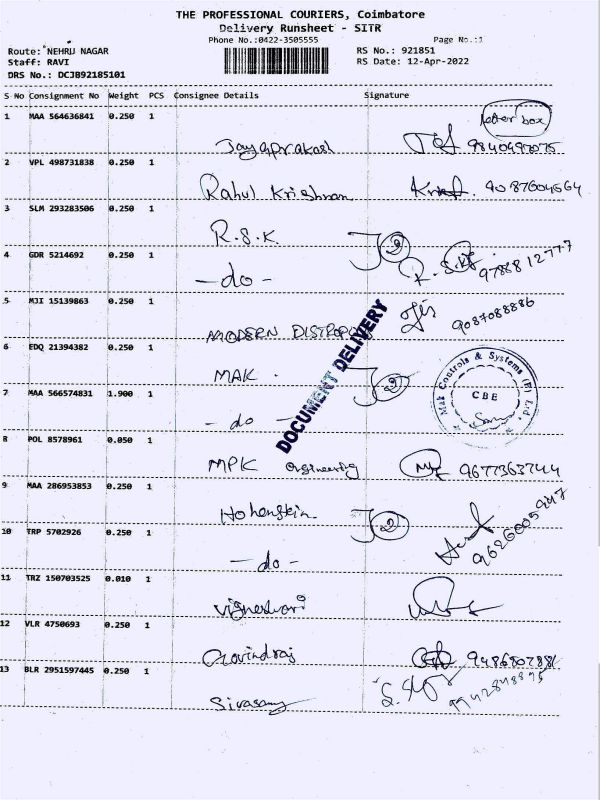 THE PROFESSIONAL COURIERS, Coimbatore
Delivery Runsheet - SITR
Phone No.:0422-3505555 Page No.:1
Route: NEHRU NAGAR RS No.: 921851
Staff: RAVI RS Date: 12-Apr-2022
DRS No.: DCJB92185101
S No Consignment No Weight PCS Consignee Details Signature
letter box
1 MAA 564636841 0.250 1
Jayaprakash 9840497075
2 VPL 498731838 0.250 1
Rahul Krishnan 9087604564
3 SLM 293283506 0.250 1
R.S.K. 2
4 GDR 5214692 0.250 1
- do - R.S.K 9788812777
5 MJI 15139863 0.250 1
MODERN 9087088886
DOCUMENT DELIVERY
6 EDQ 21394382 0.250 1
MAK. 2
Mak Controls & Systems (P) Ltd.,
CBE
7 MAA 566574831 1.900 1
- do -
8 POL 8578961 0.050 1
MPK Engineering 9677363744
9 MAA 286953853 0.250 1
Hohenstein 2
10 TRP 5702926 0.250 1
- do - 9626005947
11 TRZ 150703525 0.010 1
Vigneshwari
12 VLR 4750693 0.250 1
Govindraj 9486807881
13 BLR 2951597445 0.250 1
Sivasamy 9942848895